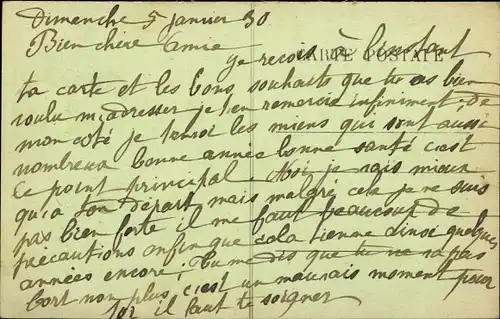 Dimanche 5 janvier 30
Bien chère Amie
CARTE POSTALE
Je reçois à l'instant
ta carte et les bons souhaits que tu as bien
voulu m'adresser je t'en remercie infiniment, de
mon coté je t'envoi les miens qui sont aussi
nombreux bonne année bonne santé c'est
le point principal. Moi je vais mieux
qu'a ton départ mais malgré cela je ne suis
pas bien forte il me faut beaucoup de
précautions enfin que cela tienne ainsi quelques
années encore, Tu me dis que tu ne va pas
fort non plus c'est un mauvais moment pour
toi il faut te soigner